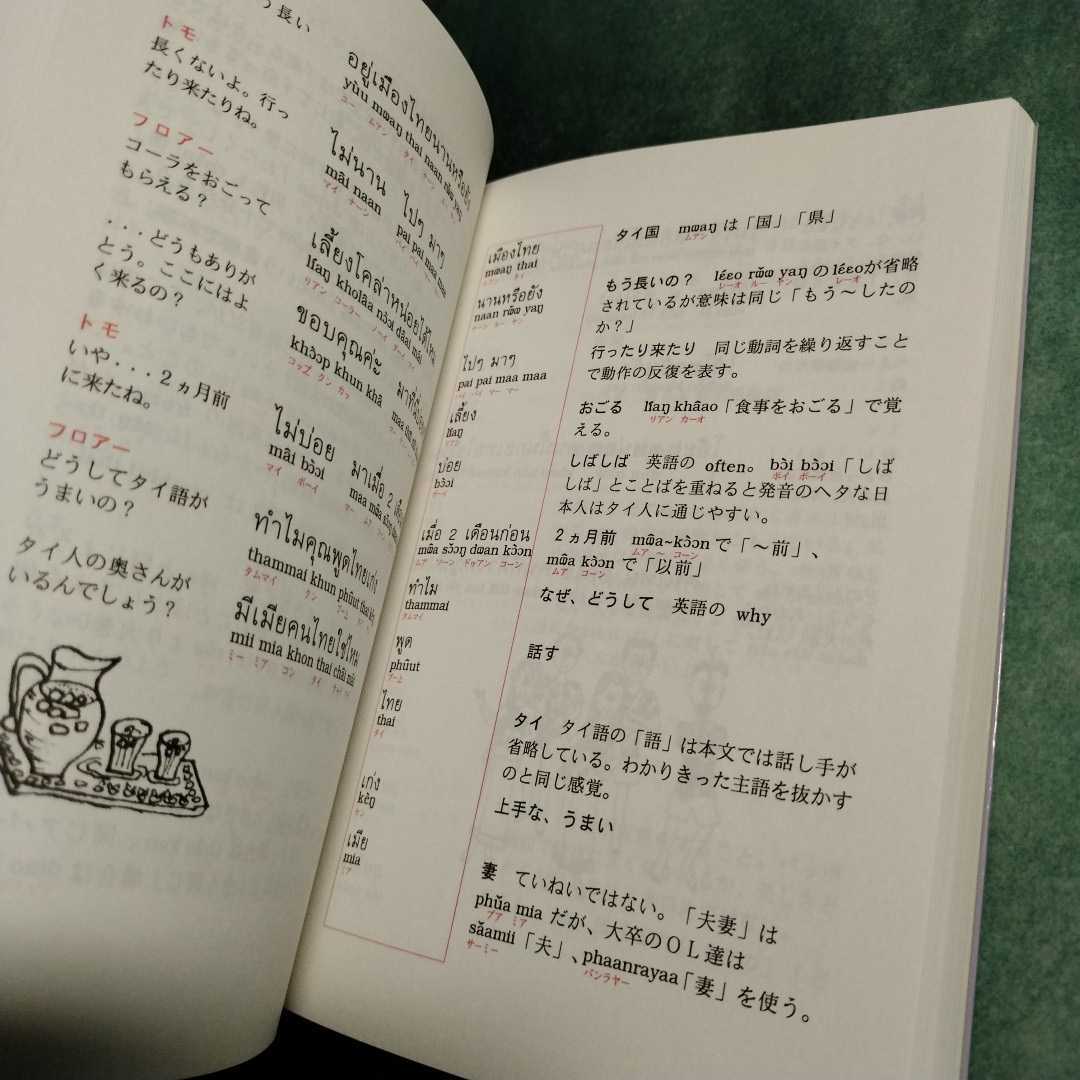 う長い
トモ
長くないよ。行っ
たり来たりね。
フロアー
コーラをおごって
もらえる？
...どうもありが
とう。ここにはよ
く来るの？
トモ
いや...2ヵ月前
に来たね。
フロアー
どうしてタイ語が
うまいの？
タイ人の奥さんが
いるんでしょう？
อยู่เมืองไทยนานหรือยัง
yùu mɯaŋ thai naan rɯ̌ɯ yaŋ
ユー ムアン タイ ナーン
ไม่นาน ไปๆ มาๆ
mâi naan pai pai maa maa
マイ ナーン
เลี้ยงโคล่าหน่อยได้ไหม
líaŋ kholâa nɔ̀ɔi dâai mái
リアン コーラー ノーイ
ขอบคุณค่ะ มาที่นี่บ่อย
khɔ̀ɔp khun khâ
コップ クン カッ
ไม่บ่อย มาเมื่อ 2 เดือน
mâi bɔ̀ɔi maa mɯ̂a sɔ̌ɔŋ
マイ ボーイ マー
ทำไมคุณพูดไทยเก่ง
thammai khun phûut thai kèŋ
タムマイ クン プート
มีเมียคนไทยใช่ไหม
mii mia khon thai châi mái
ミー ミア コン タイ
เมืองไทย
mɯaŋ thai
ムアン タイ
タイ国 mɯaŋは「国」「県」
ムアン
นานหรือยัง
naan rɯ̌ɯ yaŋ
ナーン ルー ヤン
もう長いの？ lɛ́ɛo rɯ̌ɯ yaŋのlɛ́ɛoが省略
レーオ ルー ヤン レーオ
されているが意味は同じ「もう〜したの
か？」
ไปๆ มาๆ
pai pai maa maa
パイ パイ マー マー
行ったり来たり 同じ動詞を繰り返すこと
で動作の反復を表す。
เลี้ยง
líaŋ
リアン
おごる líaŋ khâao「食事をおごる」で覚
リアン カーオ
える。
บ่อย
bɔ̀ɔi
ボーイ
しばしば 英語の often。bɔ̀i bɔ̀ɔi「しば
ボイ ボーイ
しば」とことばを重ねると発音のヘタな日
本人はタイ人に通じやすい。
เมื่อ 2 เดือนก่อน
mɯ̂a sɔ̌ɔŋ dɯan kɔ̀ɔn
ムア ソーン ドゥアン コーン
2ヵ月前 mɯ̂a~kɔ̀ɔnで「〜前」、
ムア 〜 コーン
mɯ̂a kɔ̀ɔnで「以前」
ムア コーン
ทำไม
thammai
タムマイ
なぜ、どうして 英語の why
พูด
phûut
プート
話す
ไทย
thai
タイ
タイ タイ語の「語」は本文では話し手が
省略している。わかりきった主語を抜かす
のと同じ感覚。
เก่ง
kèŋ
ケン
上手な、うまい
เมีย
mia
ミア
妻 ていねいではない。「夫妻」は
phǔa miaだが、大卒のOL達は
プア ミア
sǎamii「夫」、phaanrayaa「妻」を使う。
サーミー パンラヤー